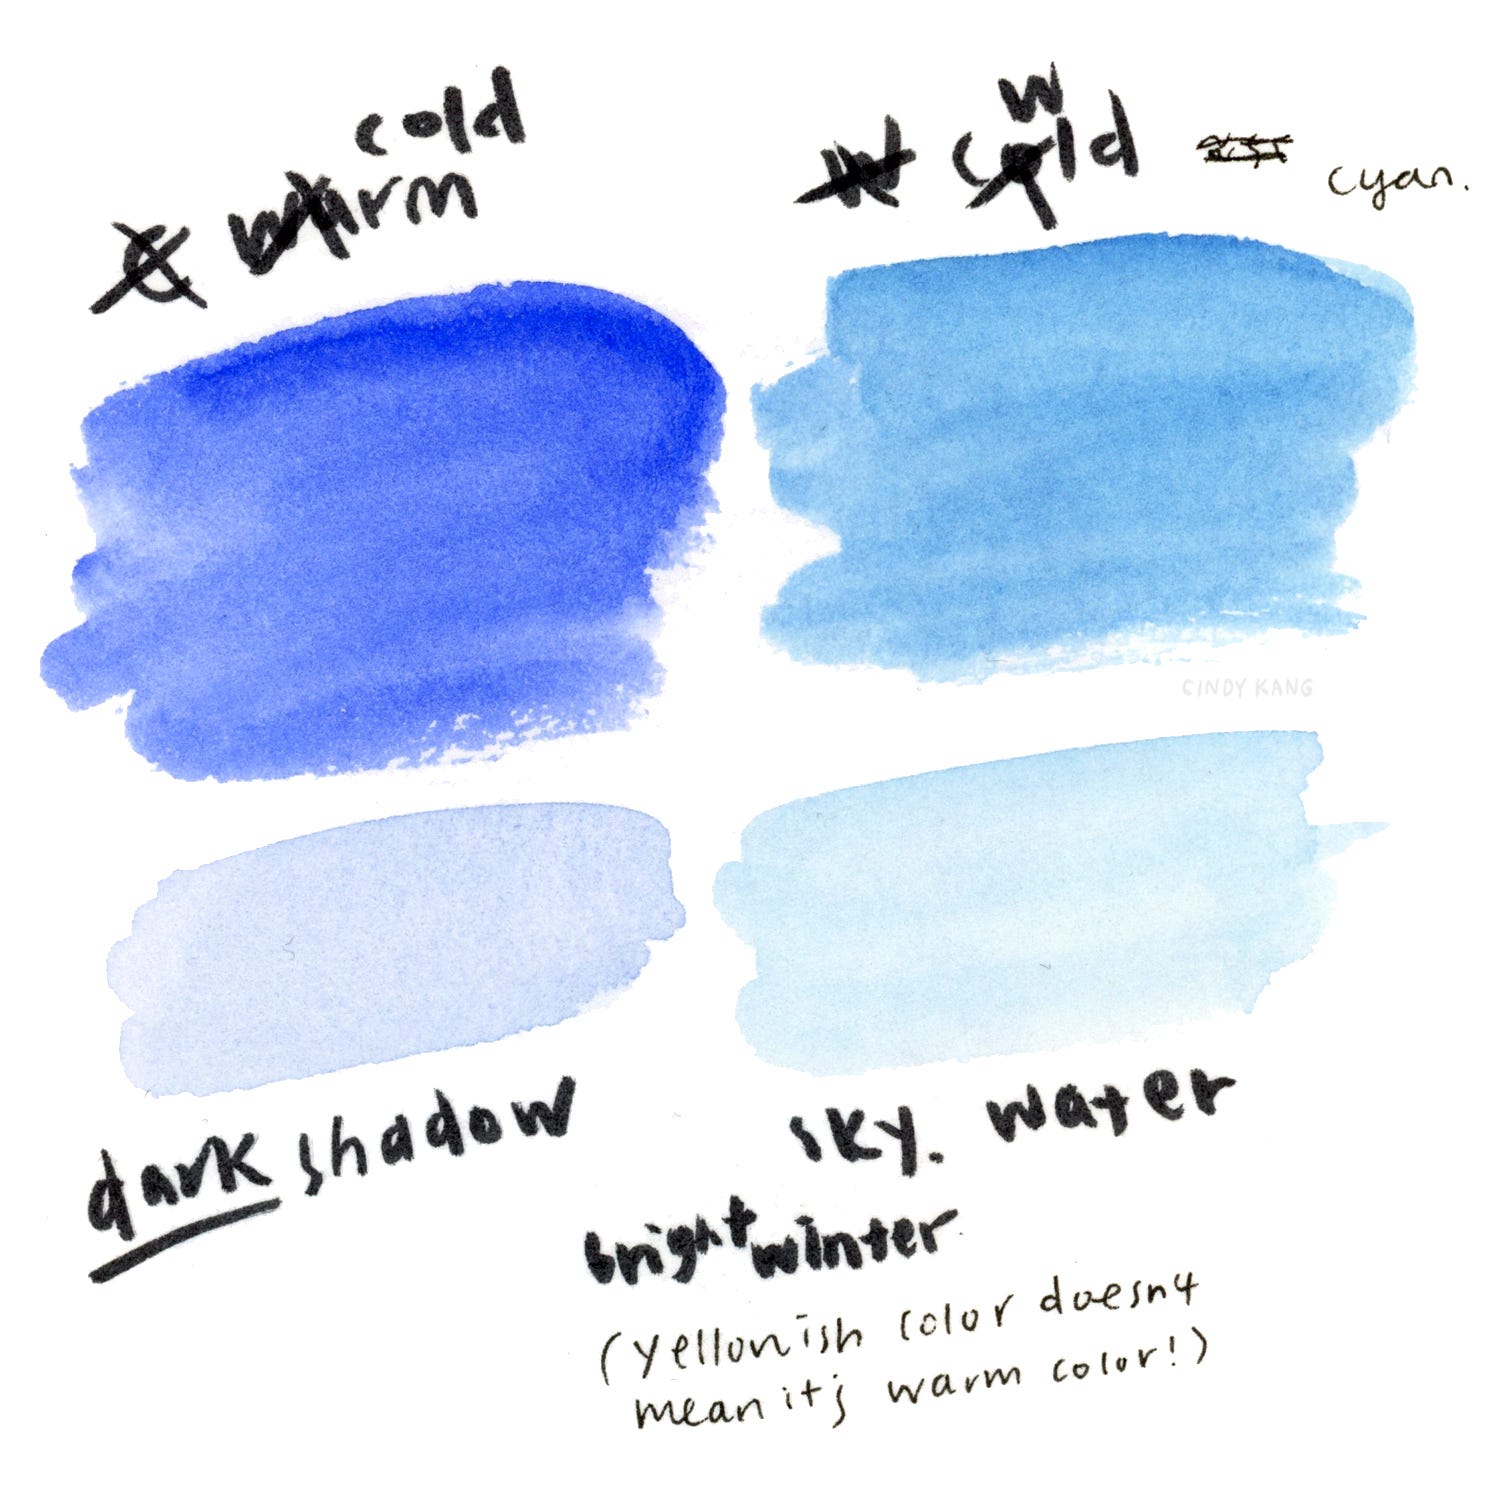 cold
warm
w
cold
cyan.
CINDY KANG
dark shadow
sky. water
bright winter
(yellowish color doesnt
mean it's warm color!)